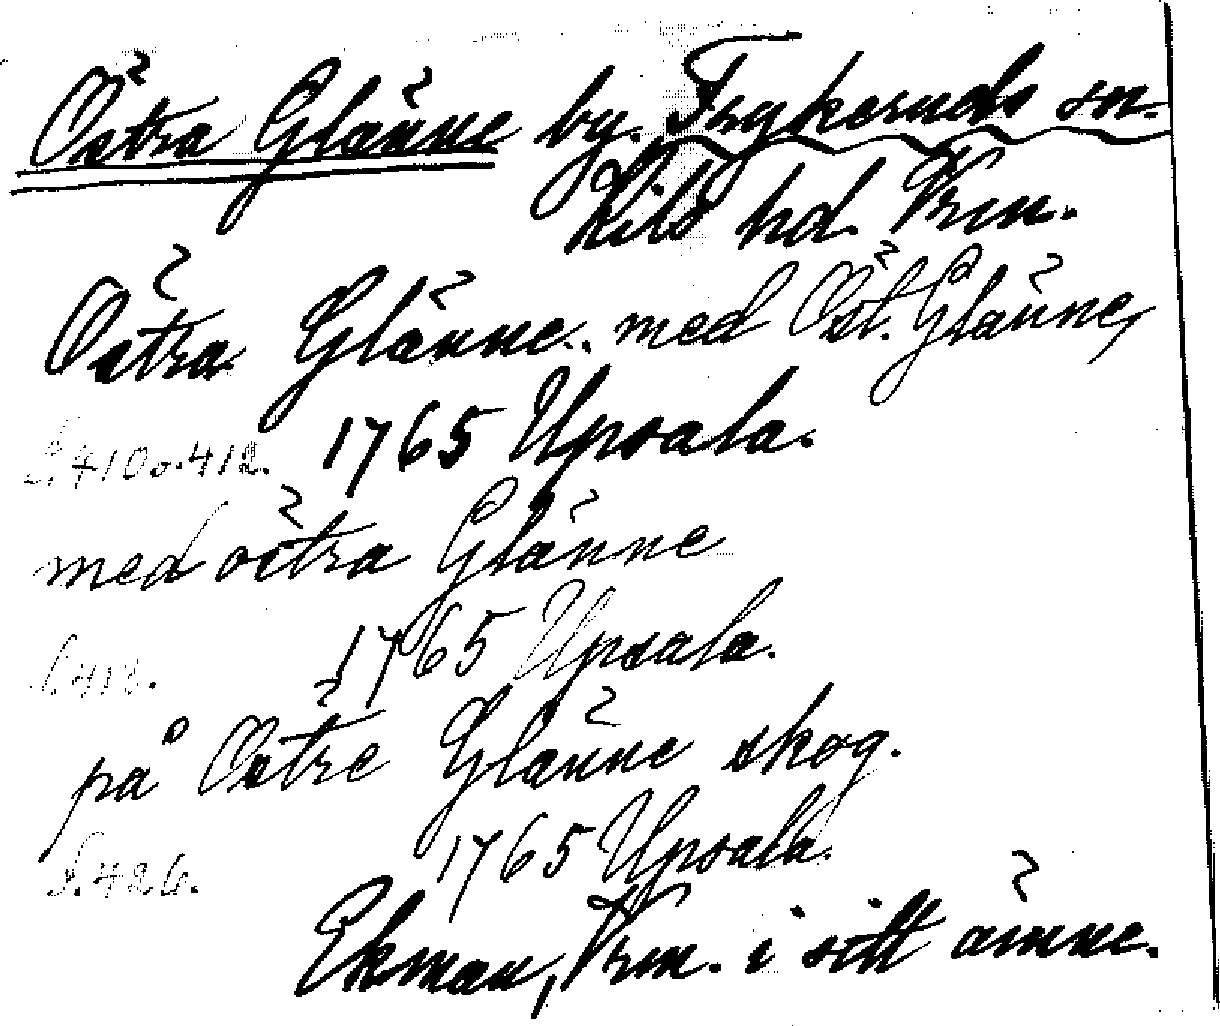 Östra Glänne by. Frykeruds sn.
Kils hd. Vrm.
Östra Glänne. med Öst. Glänne,
S. 410 o. 412. 1765 Upsala.
med östra Glänne
S. 412. 1765 Upsala.
på Östre Glänne skog.
S. 426. 1765 Upsala.
Ekman, Vrm. i sitt ämne.